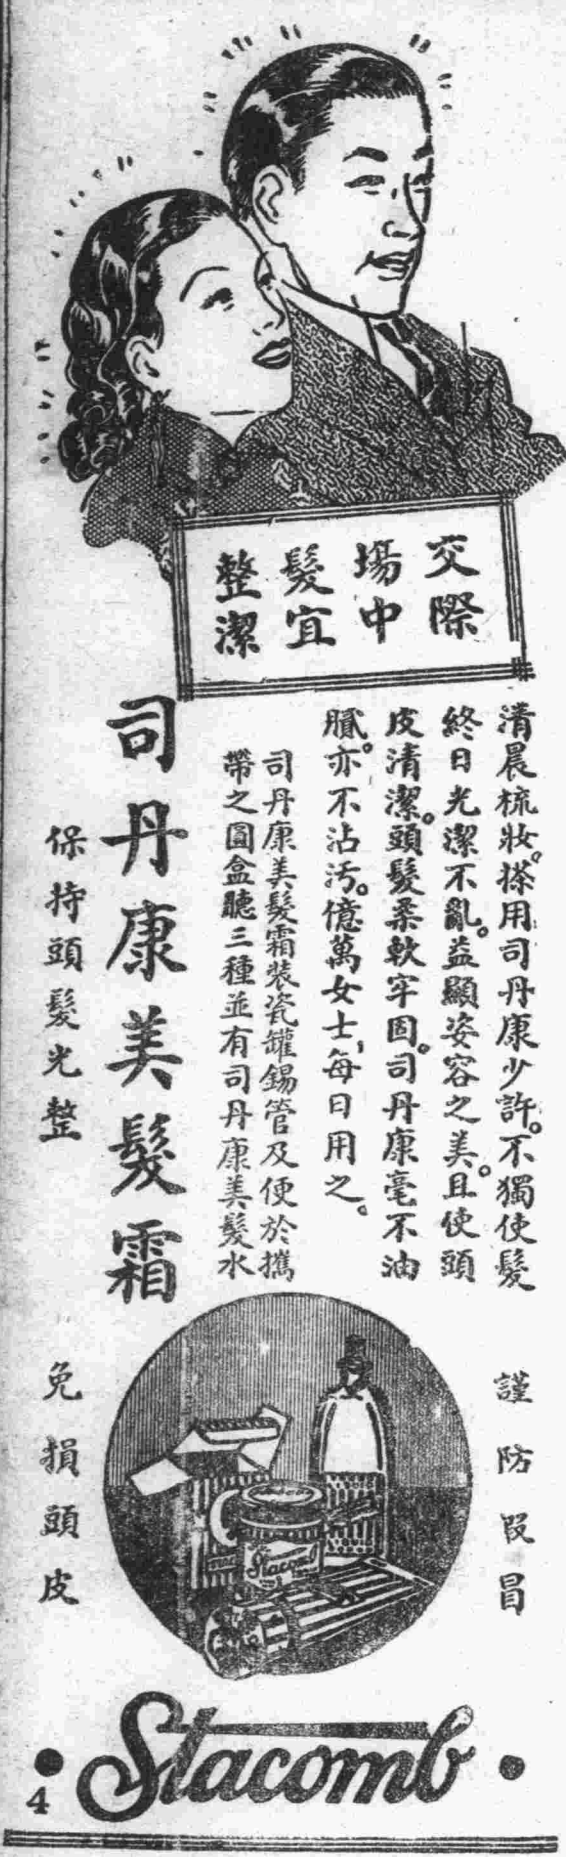 交際
場中
髮宜
整潔
清晨梳妝。搽用司丹康少許。不獨使髮
終日光潔不亂。益顯姿容之美。且使頭
皮清潔。頭髮柔軟牢固。司丹康毫不油
膩。亦不沾汚。億萬女士，每日用之。
司丹康美髮霜裝瓷罐錫管及便於攜
帶之圓盒聽三種並有司丹康美髮水
司丹康美髮霜
保持頭髮光整
免損頭皮
謹防叚冒
Stacomb
Stacomb
4